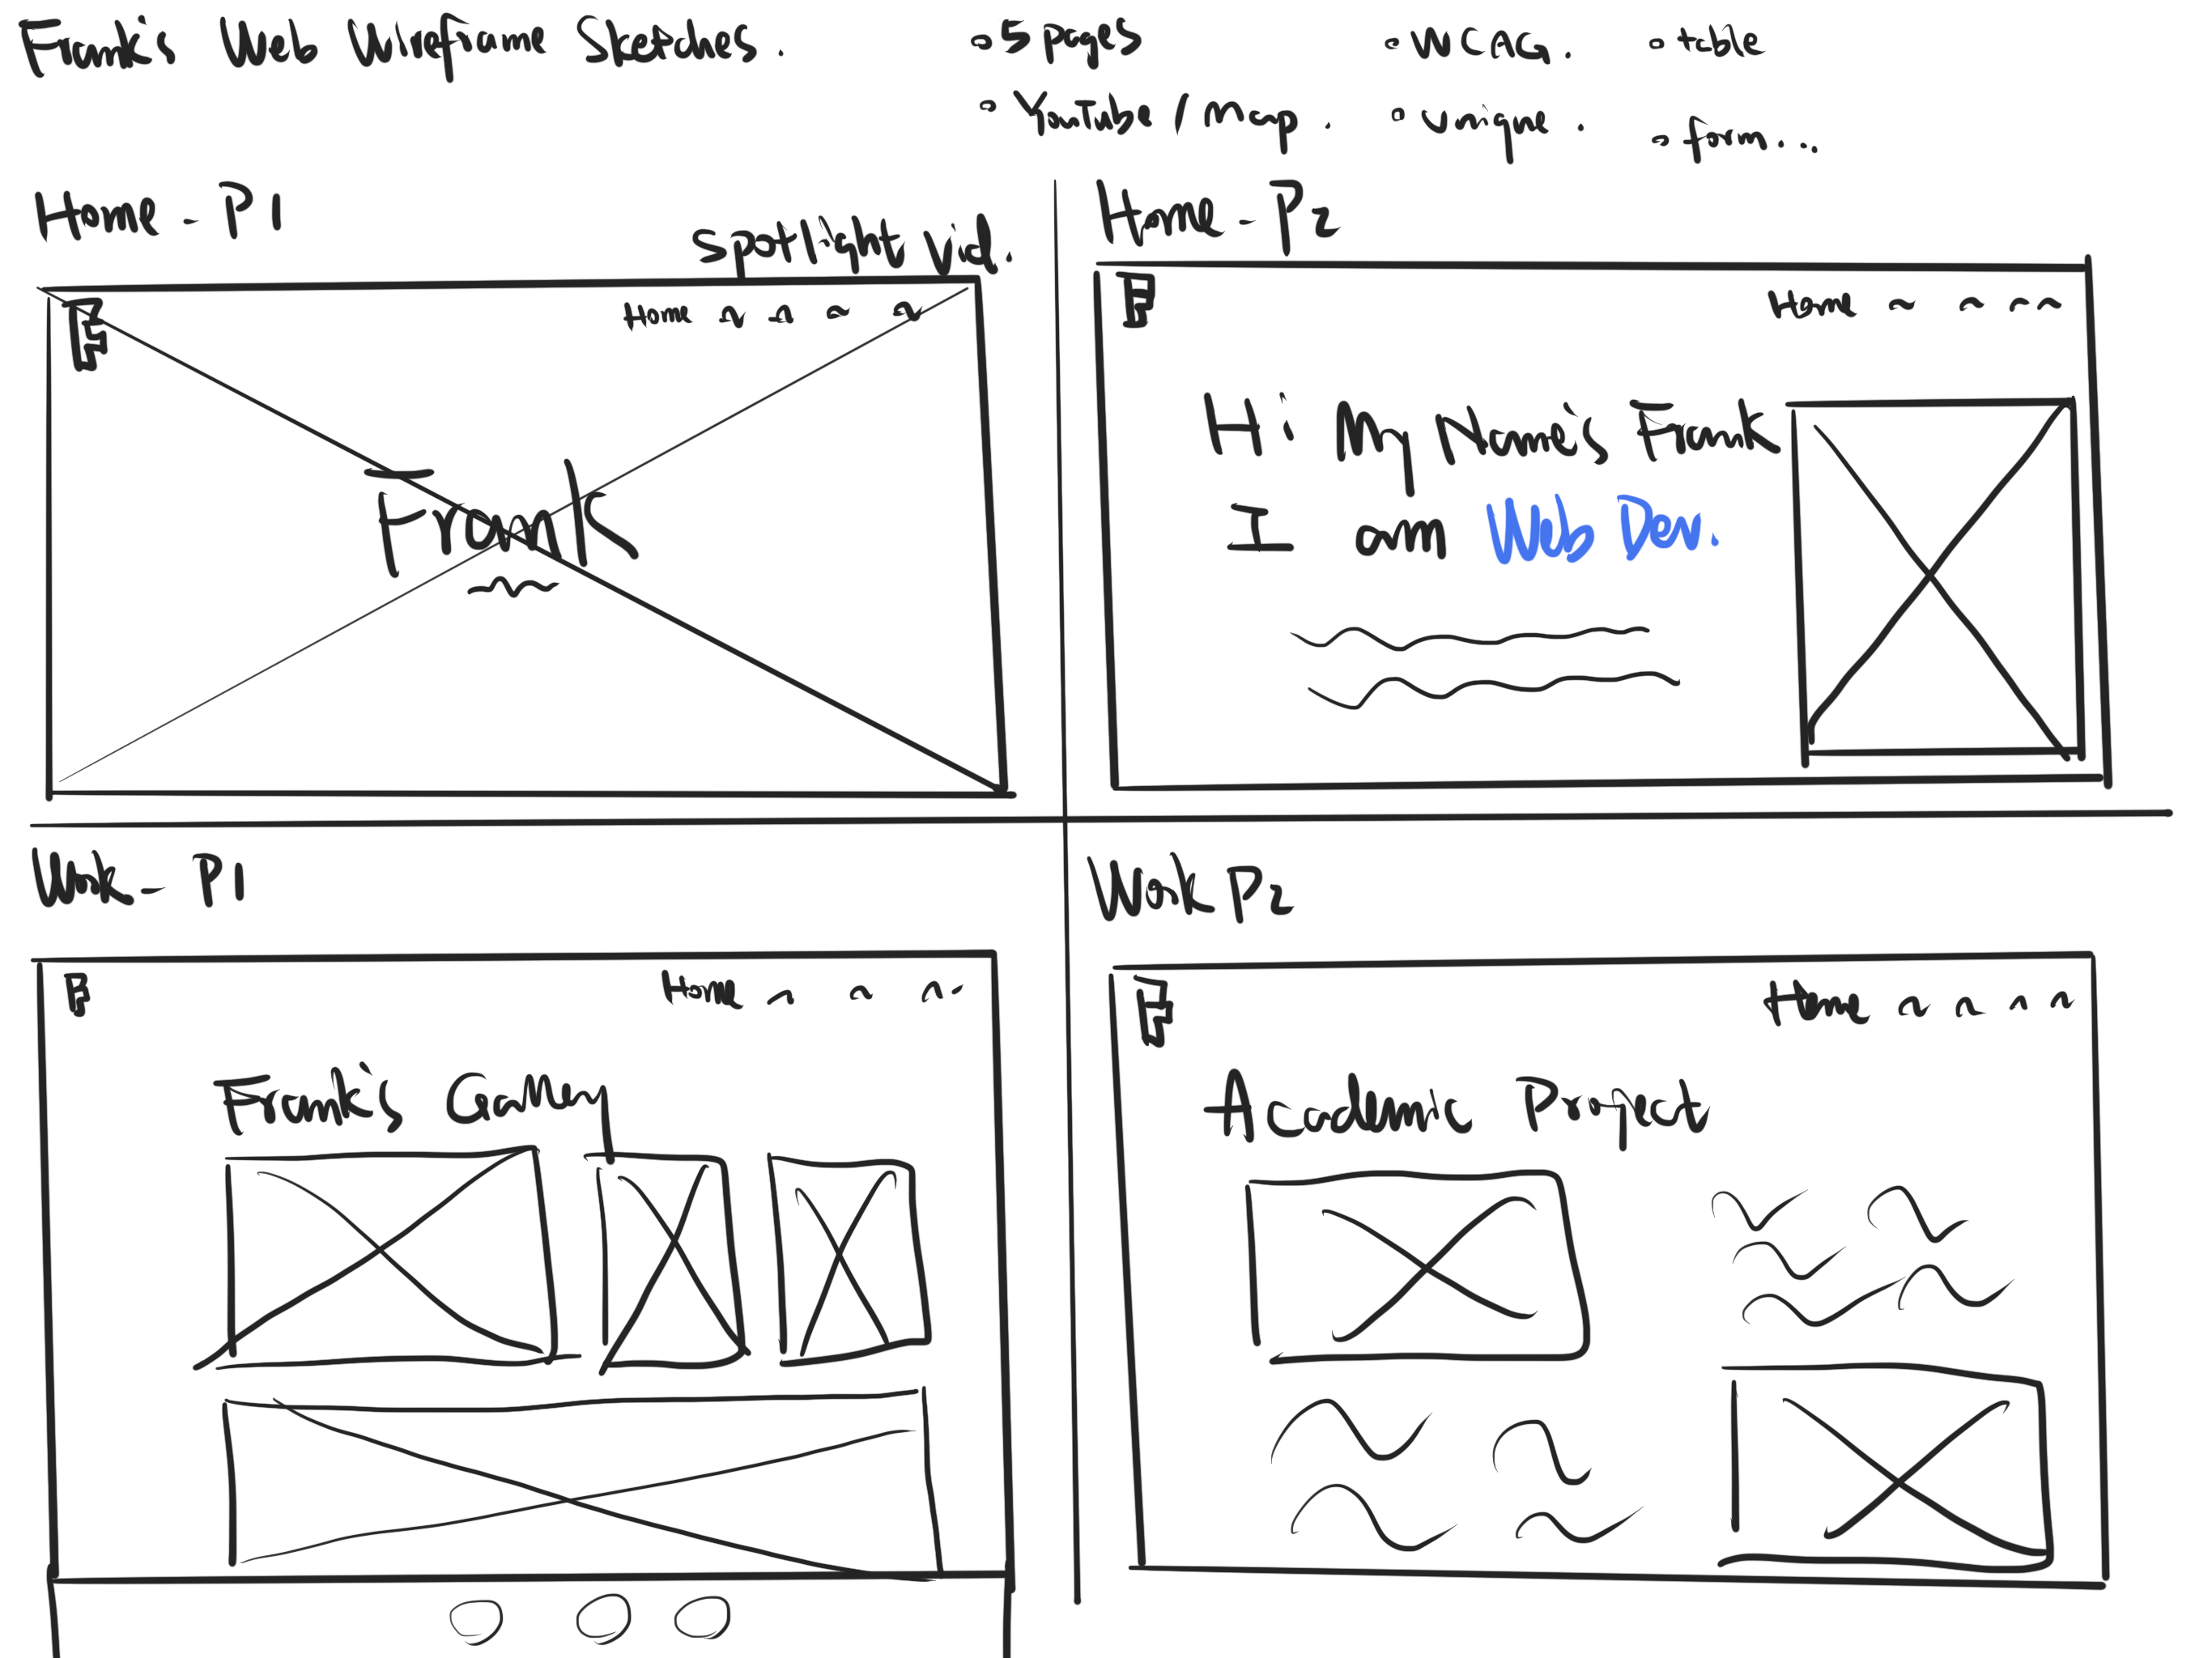 Frank's Web Wireframe Sketches.
○ 5 pages
○ YouTube / Map.
○ WCAG.
○ unique.
○ table
○ form...
Home - P1
Spotlight Vid.
F
Home
Frank
Home - P2
F
Home
Hi My Name's Frank
I am Web Dev.
Work - P1
F
Home
Frank's Gallery
Work P2
F
Home
Academic Project